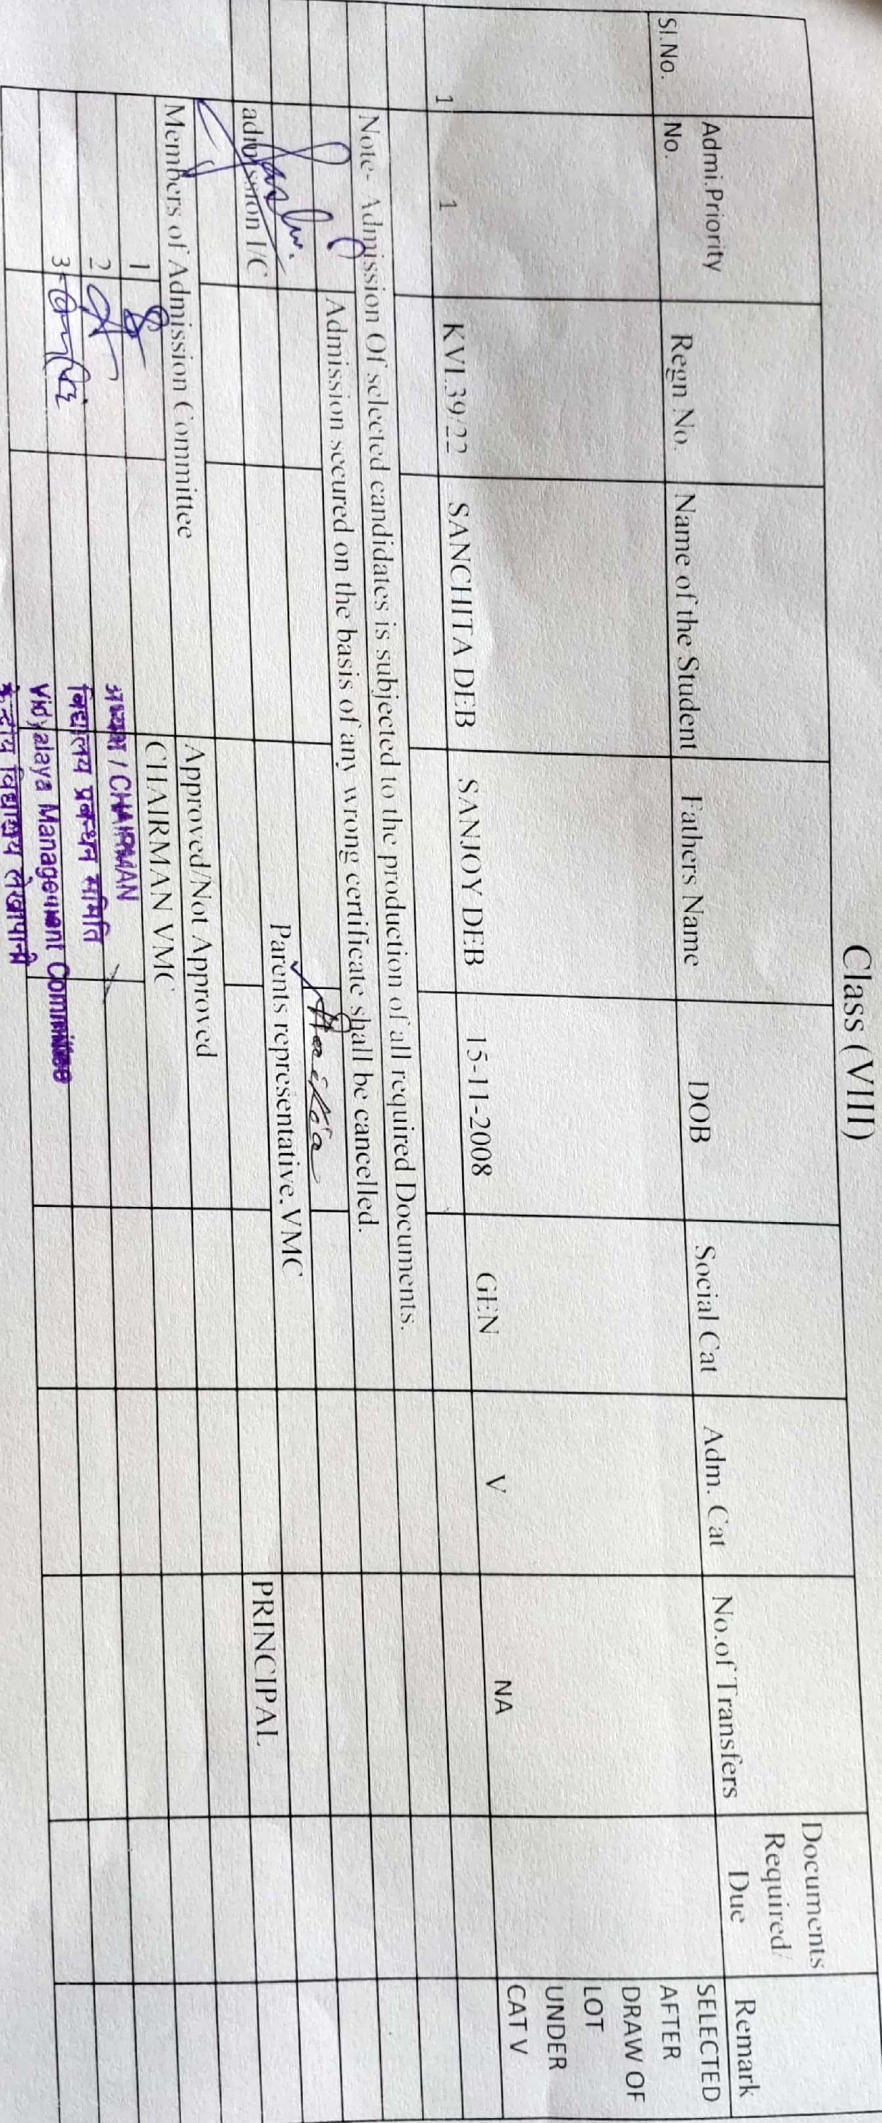 Class (VIII)
Sl.No. Admi.Priority No. Regn No. Name of the Student Fathers Name DOB Social Cat Adm. Cat No.of Transfers Documents Required/ Due Remark
1 1 KVL39/22 SANCHITA DEB SANJOY DEB 15-11-2008 GEN V NA SELECTED AFTER DRAW OF LOT UNDER CAT V
Note- Admission Of selected candidates is subjected to the production of all required Documents.
Admission secured on the basis of any wrong certificate shall be cancelled.
admission I/C Parents representative, VMC PRINCIPAL
Approved/Not Approved
Members of Admission Committee CHAIRMAN VMC
1
2
3
अध्यक्ष / CHAIRMAN
विद्यालय प्रबन्धन समिति
Vidyalaya Management Committee
केन्द्रीय विद्यालय लेखापानी